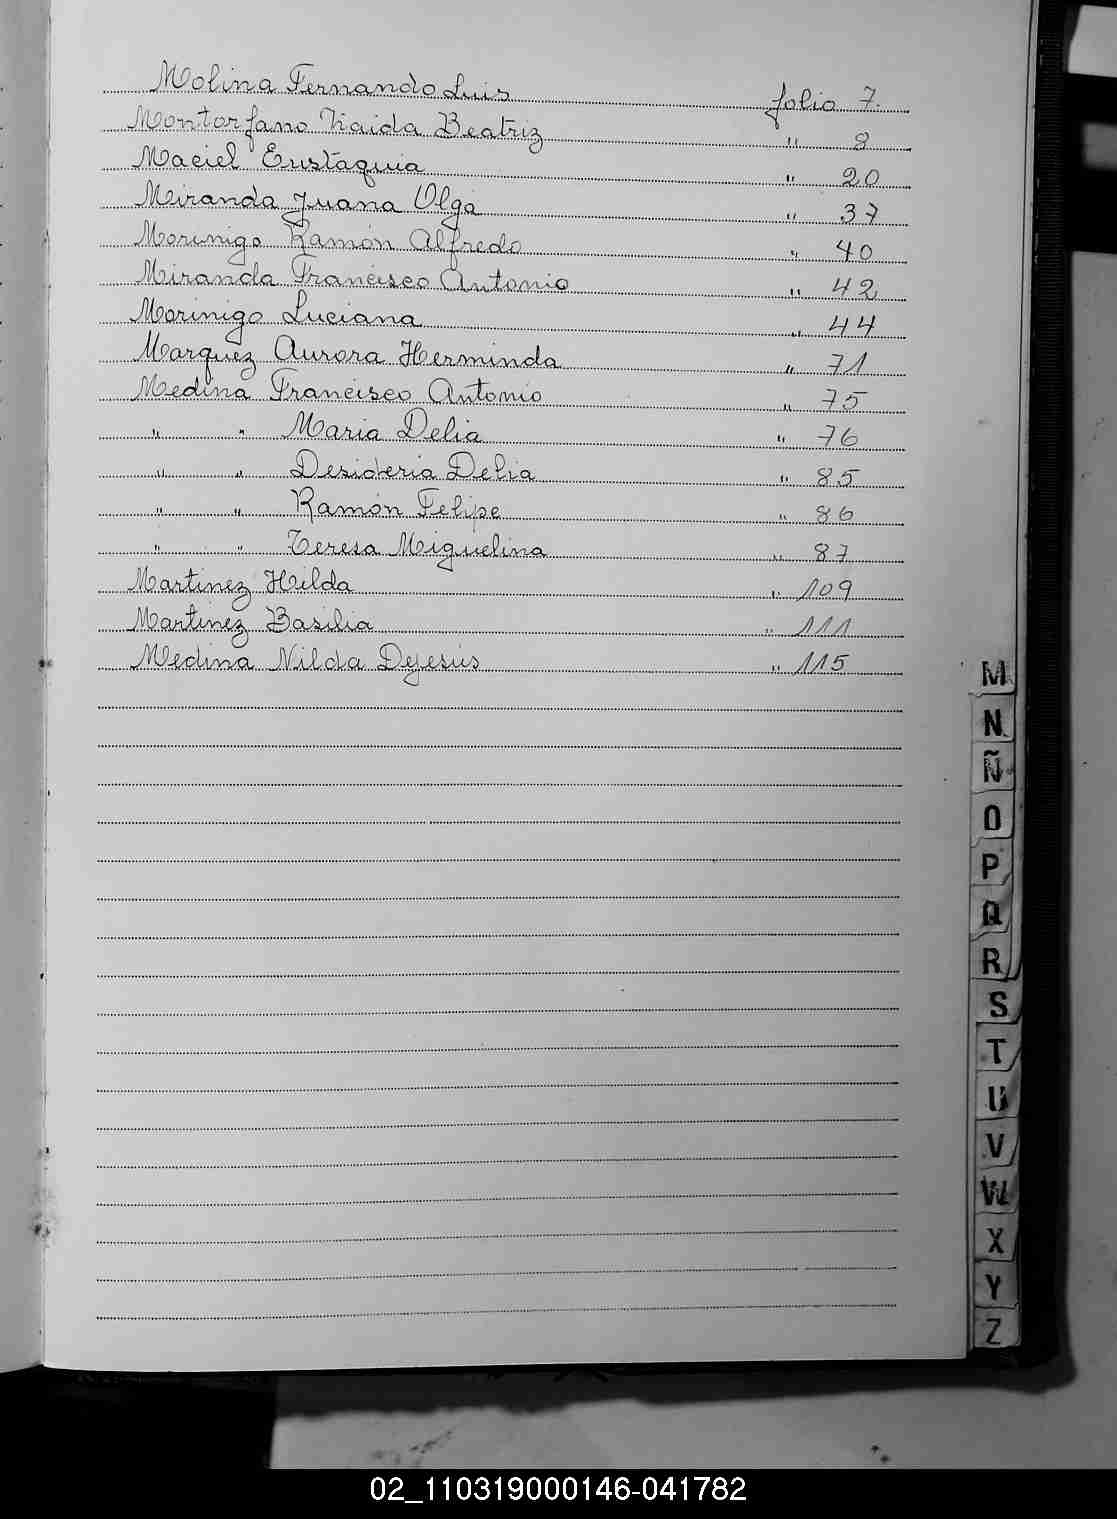 Molina Fernando Luis folio 7.
Montorfano Naida Beatriz " 8
Maciel Eustaquia " 20
Miranda Juana Olga " 37
Morinigo Ramón Alfredo " 40
Miranda Francisco Antonio " 42
Morinigo Luciana " 44
Marquez Aurora Herminda " 71
Medina Francisco Antonio " 75
" " Maria Delia " 76
" " Desideria Delia " 85
" " Ramón Felipe " 86
" " Teresa Miguelina " 87
Martinez Hilda " 109
Martinez Basilia " 111
Medina Nilda Dejesús " 115
M
N
Ñ
O
P
Q
R
S
T
U
V
W
X
Y
Z
02_110319000146-041782